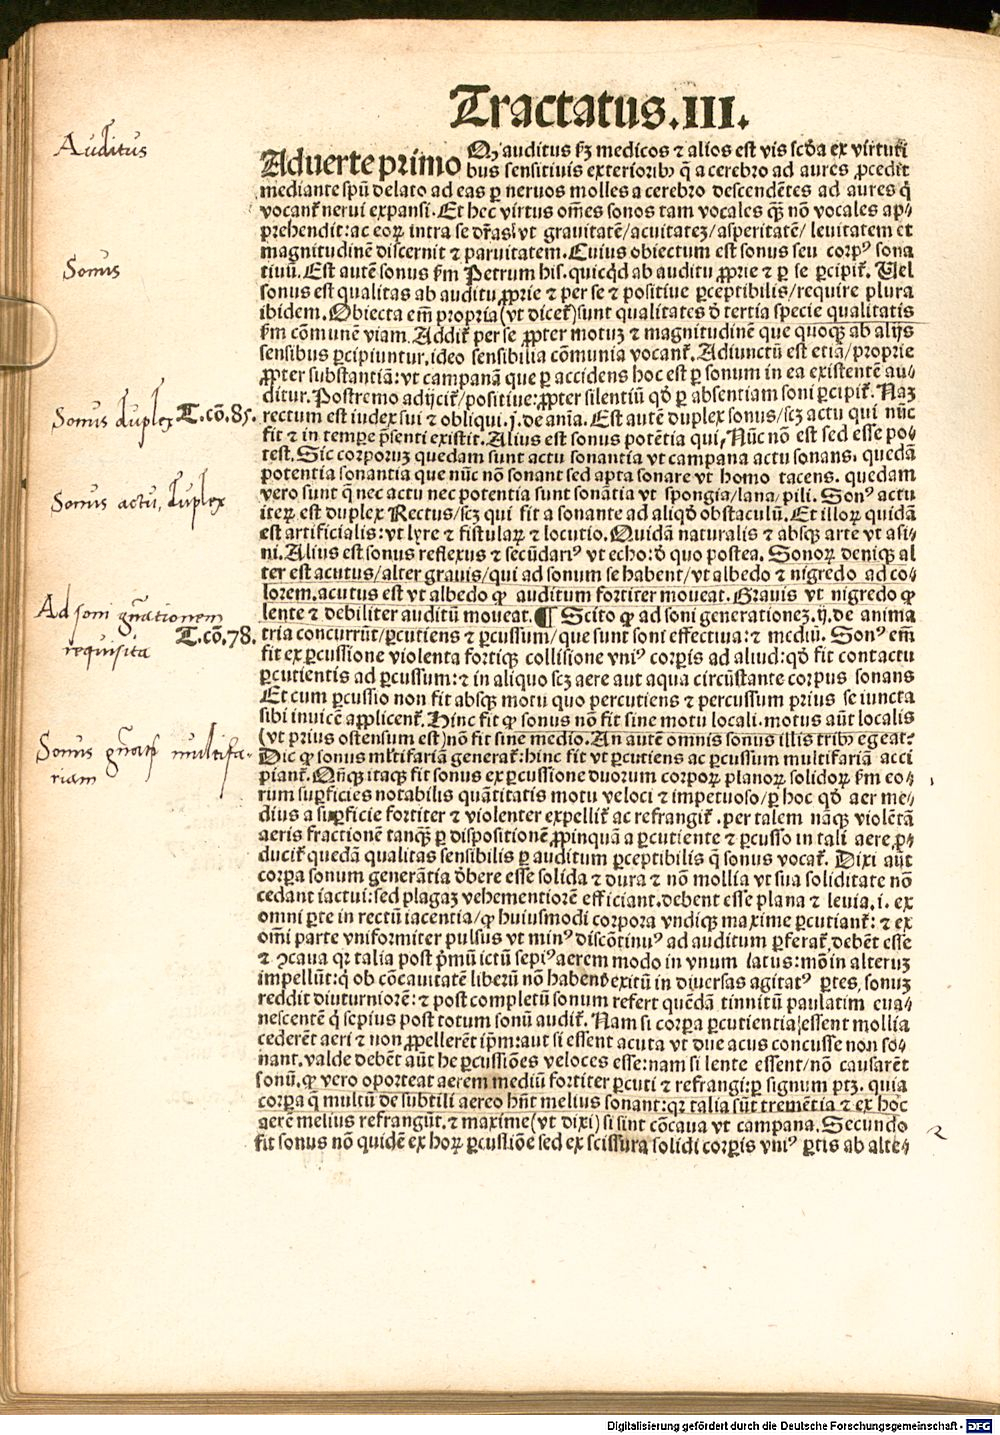 Tractatus.III.
Auditus
Aduerte primo Qꝫ auditus ẜm medicos ⁊ alios est vis scďa ex virtuti
bus sensitiuis exterioribꝰ q̄ a cerebro ad aures ꝓcedit
mediante spū delato ad eas ꝑ neruos molles a cerebro descendētes ad aures q̇
vocant̃ nerui expansi. Et hec virtus om̄es sonos tam vocales qꝫ̄ nō vocales ap⸗
prehendit: ac eoꝝ intra se dr̄as/ vt grauitatē/ acuitatez/ asperitatē/ leuitatem et
magnitudinē discernit ⁊ paruitatem. Cuius obiectum est sonus seu corpꝰ sona
Sonus
tiuū. Est autē sonus ẜm Petrum his. quicq̇d ab auditu ꝓprie ⁊ ꝑ se ꝑcipit̃. Uel
sonus est qualitas ab auditu ꝓprie ⁊ per se ⁊ positiue ꝑceptibilis/ require plura
ibidem. Obiecta em̄ propria (vt dicet̃) sunt qualitates ď tertia specie qualitatis
ẜm cōmunē viam. Addit̃ per se ꝓpter motuꝫ ⁊ magnitudinē que quoqꝫ ab alijs
sensibus ꝑcipiuntur. ideo sensibilia cōmunia vocant̃. Adiunctū est etiā/ proprie
ꝓpter substantiā: vt campanā que ꝑ accidens hoc est ꝑ sonum in ea existentē au⸗
ditur. Postremo adijcit̃/ positiue: ꝓpter silentiū qď ꝑ absentiam soni ꝑcipit̃. Naꝫ
Sonus duplex T.cō.85. rectum est iudex sui ⁊ obliqui. j. de aīa. Est autē duplex sonus/ scꝫ actu qui nūc
fit ⁊ in tempe p̄senti existit. Alius est sonus potētia qui, Nūc nō est sed esse po⸗
test. Sic corporuꝫ quedam sunt actu sonantia vt campana actu sonans. quedā
potentia sonantia que nūc nō sonant sed apta sonare vt homo tacens. quedam
Sonus actu, duplex
vero sunt q̄ nec actu nec potentia sunt sonātia vt spongia/ lana/ pili. Sonꝰ actu
iteꝝ est duplex Rectus/ scꝫ qui fit a sonante ad aliqď obstaculū. Et illoꝝ quidā
est artificialis: vt lyre ⁊ fistulaꝝ ⁊ locutio. Quidā naturalis ⁊ absqꝫ arte vt asi⸗
ni. Alius est sonus reflexus ⁊ secūdariꝰ vt echo: ď quo postea. Sonoꝝ deniqꝫ al
ter est acutus/ alter grauis/ qui ad sonum se habent/ vt albedo ⁊ nigredo ad co⸗
lorem. acutus est vt albedo ꝙ auditum fortiter moueat. Grauis vt nigredo ꝙ
Ad soni gn̄ationem
lente ⁊ debiliter auditū moueat. ¶ Scito ꝙ ad soni generationeꝫ. ij. de anima
requisita T.cō.78. tria concurrūt/ ꝑcutiens ⁊ ꝑcussum/ que sunt soni effectiua: ⁊ mediū. Sonꝰ em̄
fit ex ꝑcussione violenta fortiqꝫ collisione vniꝰ corꝑis ad aliud: qď fit contactu
ꝑcutientis ad ꝑcussum: ⁊ in aliquo scꝫ aere aut aqua circūstante corpus sonans
Et cum ꝑcussio non fit absqꝫ motu quo percutiens ⁊ percussum prius se iuncta
sibi inuicē applicent̃. Hinc fit ꝙ sonus nō fit sine motu locali. motus aūt localis
Sonus gn̄at̃ multifa-
riam
(vt prius ostensum est) nō fit sine medio. An autē omnis sonus illis tribꝰ egeat?
Dic ꝙ sonus mltifariā generat̃: hinc fit vt ꝑcutiens ac ꝑcussum multifariā acci
piant̃. Qn̄qꝫ itaqꝫ fit sonus ex ꝑcussione duorum corpoꝝ planoꝝ solidoꝝ ẜm eo⸗
rum suꝑficies notabilis quātitatis motu veloci ⁊ impetuoso/ ꝑ hoc qď aer me⸗
dius a suꝑficie fortiter ⁊ violenter expellit̃ ac refrangit̃. per talem nāqꝫ violētā
aeris fractionē tanqꝫ̄ ꝑ dispositionē ꝓpinquā a ꝑcutiente ⁊ ꝑcusso in tali aere ꝓ⸗
ducit̃ quedā qualitas sensibilis ꝑ auditum ꝑceptibilis q̄ sonus vocat̃. Dixi aūt
corꝑa sonum generātia ďbere esse solida ⁊ dura ⁊ nō mollia vt sua soliditate nō
cedant iactui: sed plagaꝫ vehementiorē efficiant. debent esse plana ⁊ leuia. i. ex
omni ꝑte in rectū iacentia/ ꝙ huiusmodi corpora vndiqꝫ maxime ꝑcutiant̃: ⁊ ex
om̄i parte vniformiter pulsus vt minꝰ discōtinuꝰ ad auditum ꝑferat̃. debēt esse
⁊ ꝯcaua qꝛ talia post p̄mū ictū sepiꝰ aerem modo in vnum latus: mō in alteruꝫ
impellūt: q̇ ob cōcauitatē liberū nō habens exitū in diuersas agitatꝰ ꝑtes, sonuꝫ
reddit diuturniorē: ⁊ post completū sonum refert quēdā tinnitū paulatim eua⸗
nescentē q̇ sepius post totum sonū audit̃. Nam si corꝑa ꝑcutientia essent mollia
cederēt aeri ⁊ non ꝓpellerēt ip̄m: aut si essent acuta vt due acus concusse non so⸗
nant. valde debēt aūt he ꝑcussiōes veloces esse: nam si lente essent/ nō causarēt
sonū. ꝙ vero oporteat aerem mediū fortiter ꝑcuti ⁊ refrangi: ꝑ signum ptꝫ. quia
corꝑa q̄ multū de subtili aereo hn̄t melius sonant: qꝛ talia sūt tremētia ⁊ ex hoc
aerē melius refrangūt. ⁊ maxime (vt dixi) si sint cōcaua vt campana. Secundo
2
fit sonus nō quidē ex hoꝝ ꝑcussiōe sed ex scissura solidi corꝑis vniꝰ ꝑtis ab alte⸗
Digitalisierung gefördert durch die Deutsche Forschungsgemeinschaft - DFG